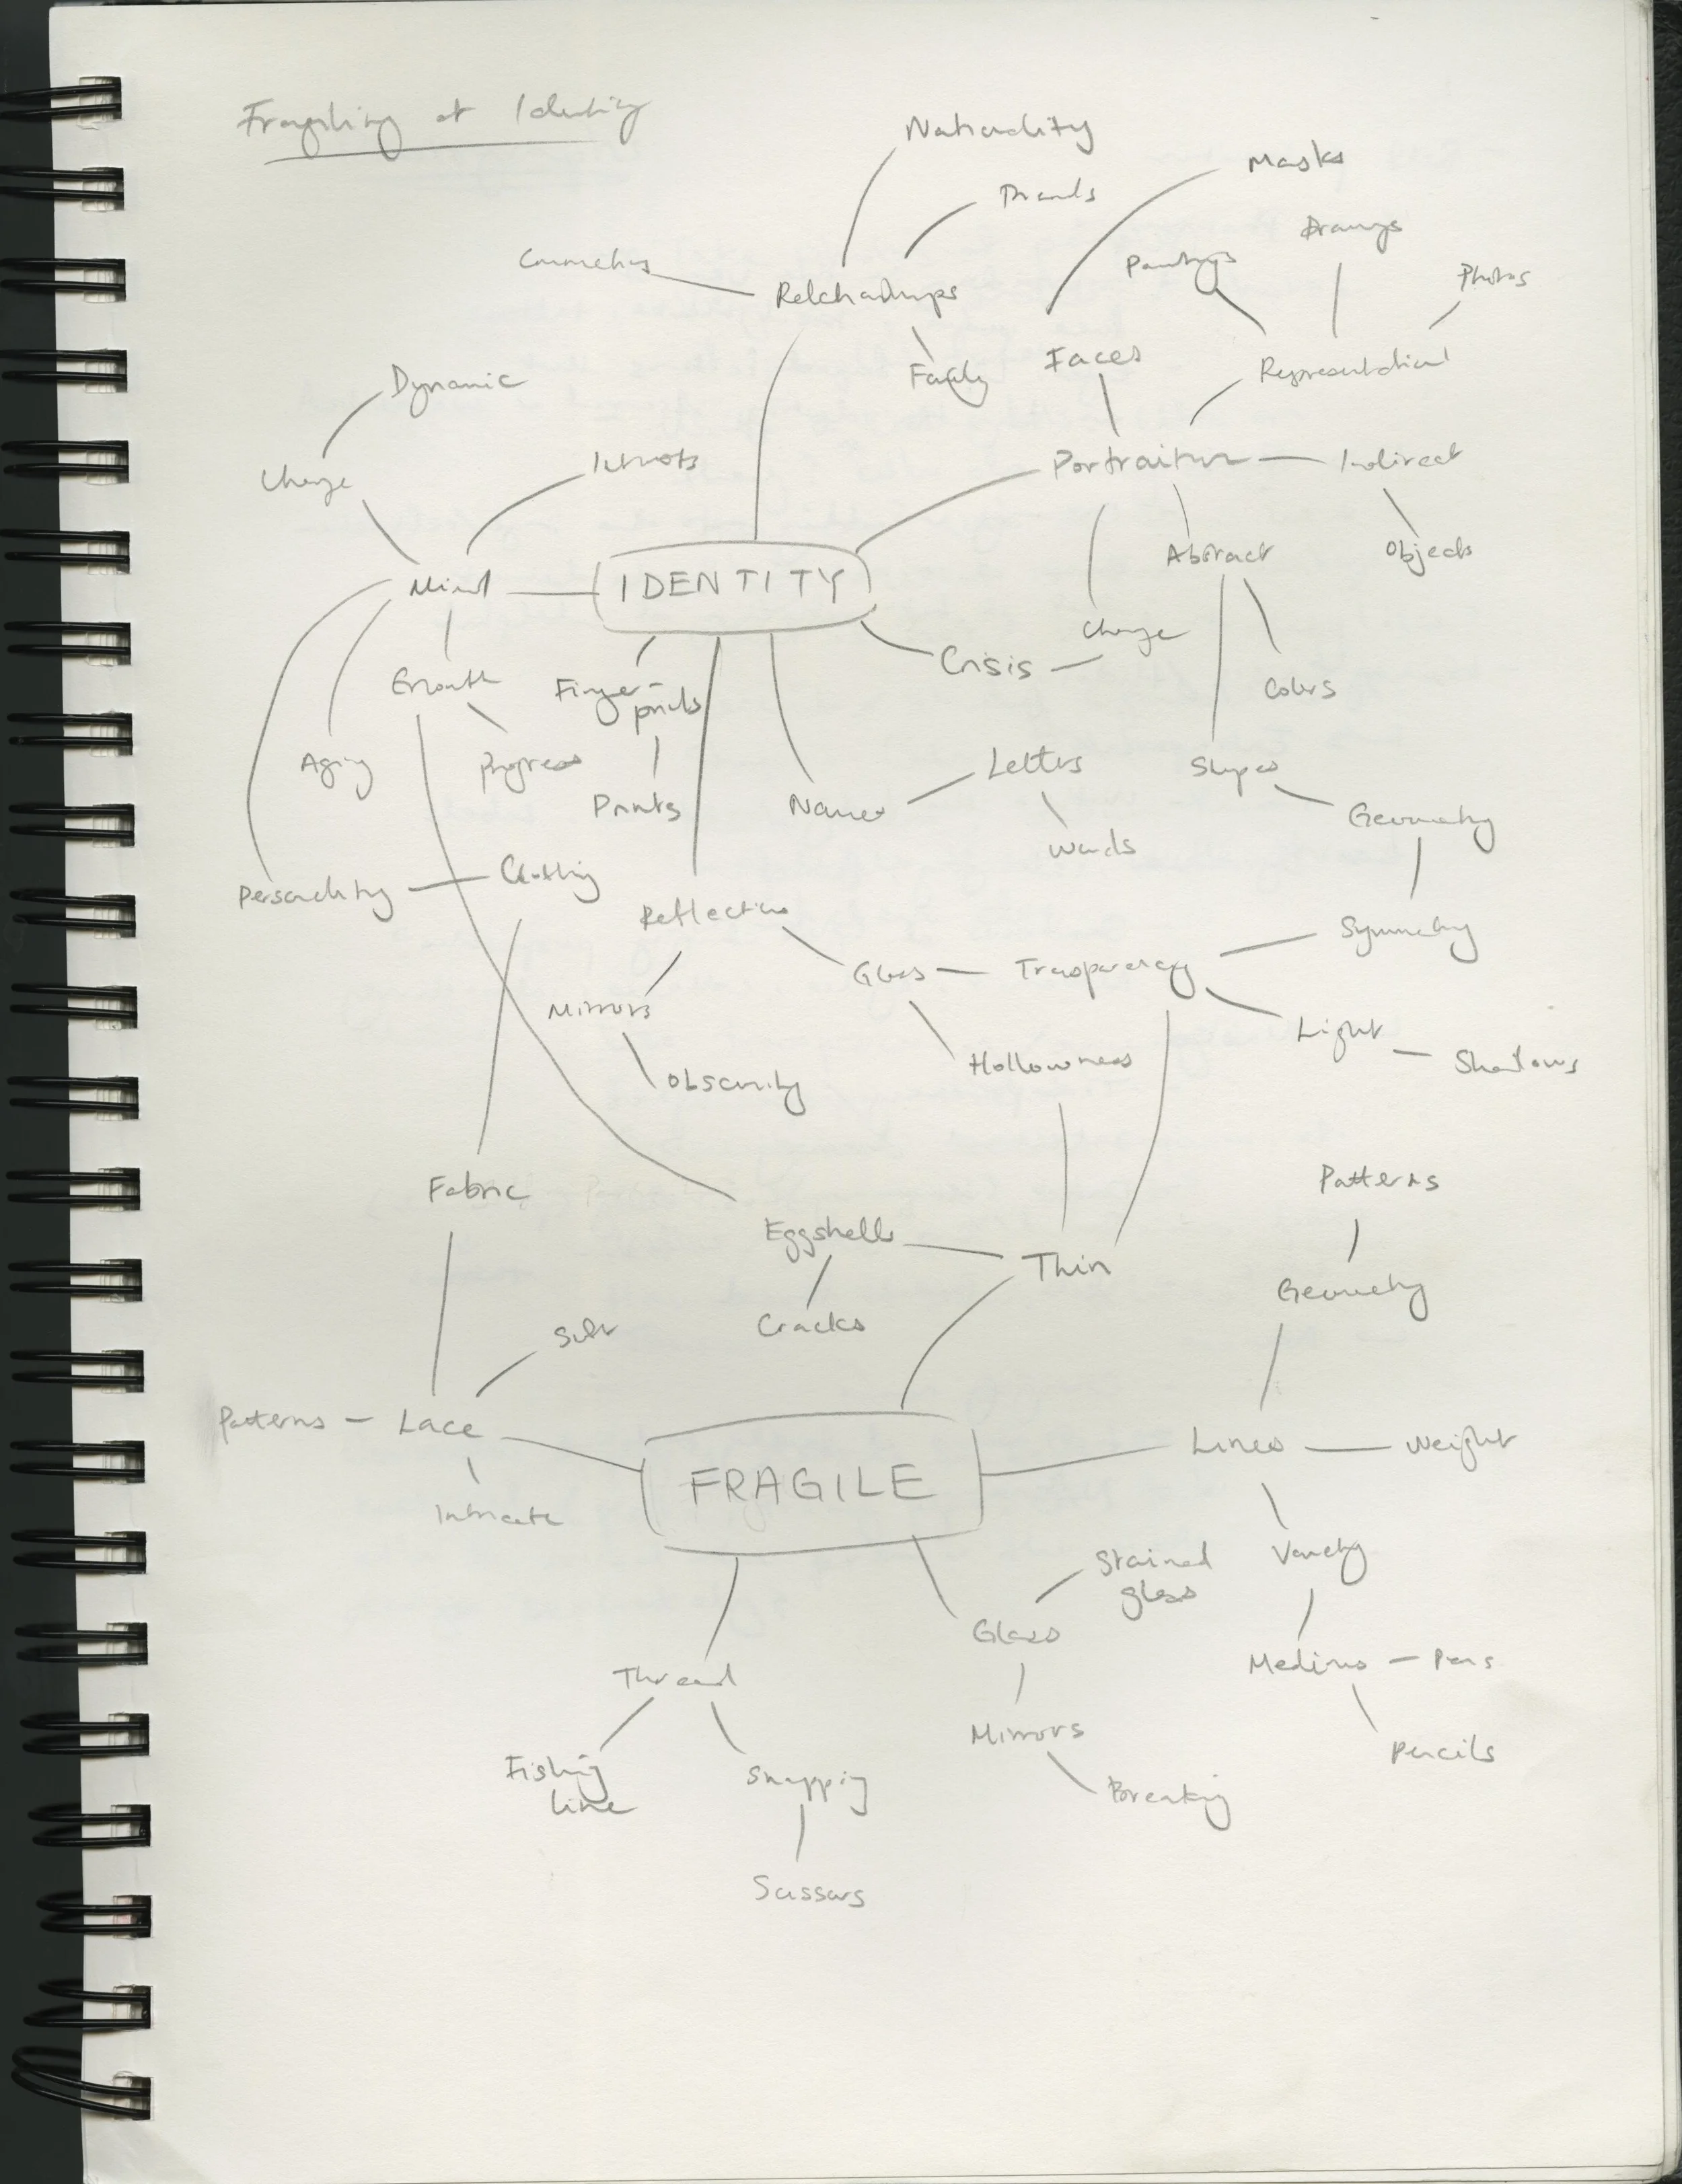 Fragility of Identity
Nationality
Masks
Friends
Drawings
Paintings
Connections
Photos
Relationships
Faces
Family
Representational
Dynamic
Portraiture
Indirect
Interests
Change
Abstract
Objects
IDENTITY
Mind
Change
Crisis
Growth
Finger-
prints
Colors
Aging
Progress
Letters
Shapes
Prints
Names
Geometry
Words
Clothing
Personality
Reflection
Symmetry
Glass
Transparency
Mirrors
Light
Hollowness
Shadows
Obscurity
Fabric
Patterns
Eggshells
Thin
Geometry
Cracks
Soft
Patterns
Lace
Lines
Weight
FRAGILE
Intricate
Stained
glass
Variety
Glass
Thread
Mediums
Pens
Mirrors
Fishing
line
Snapping
Pencils
Breaking
Scissors